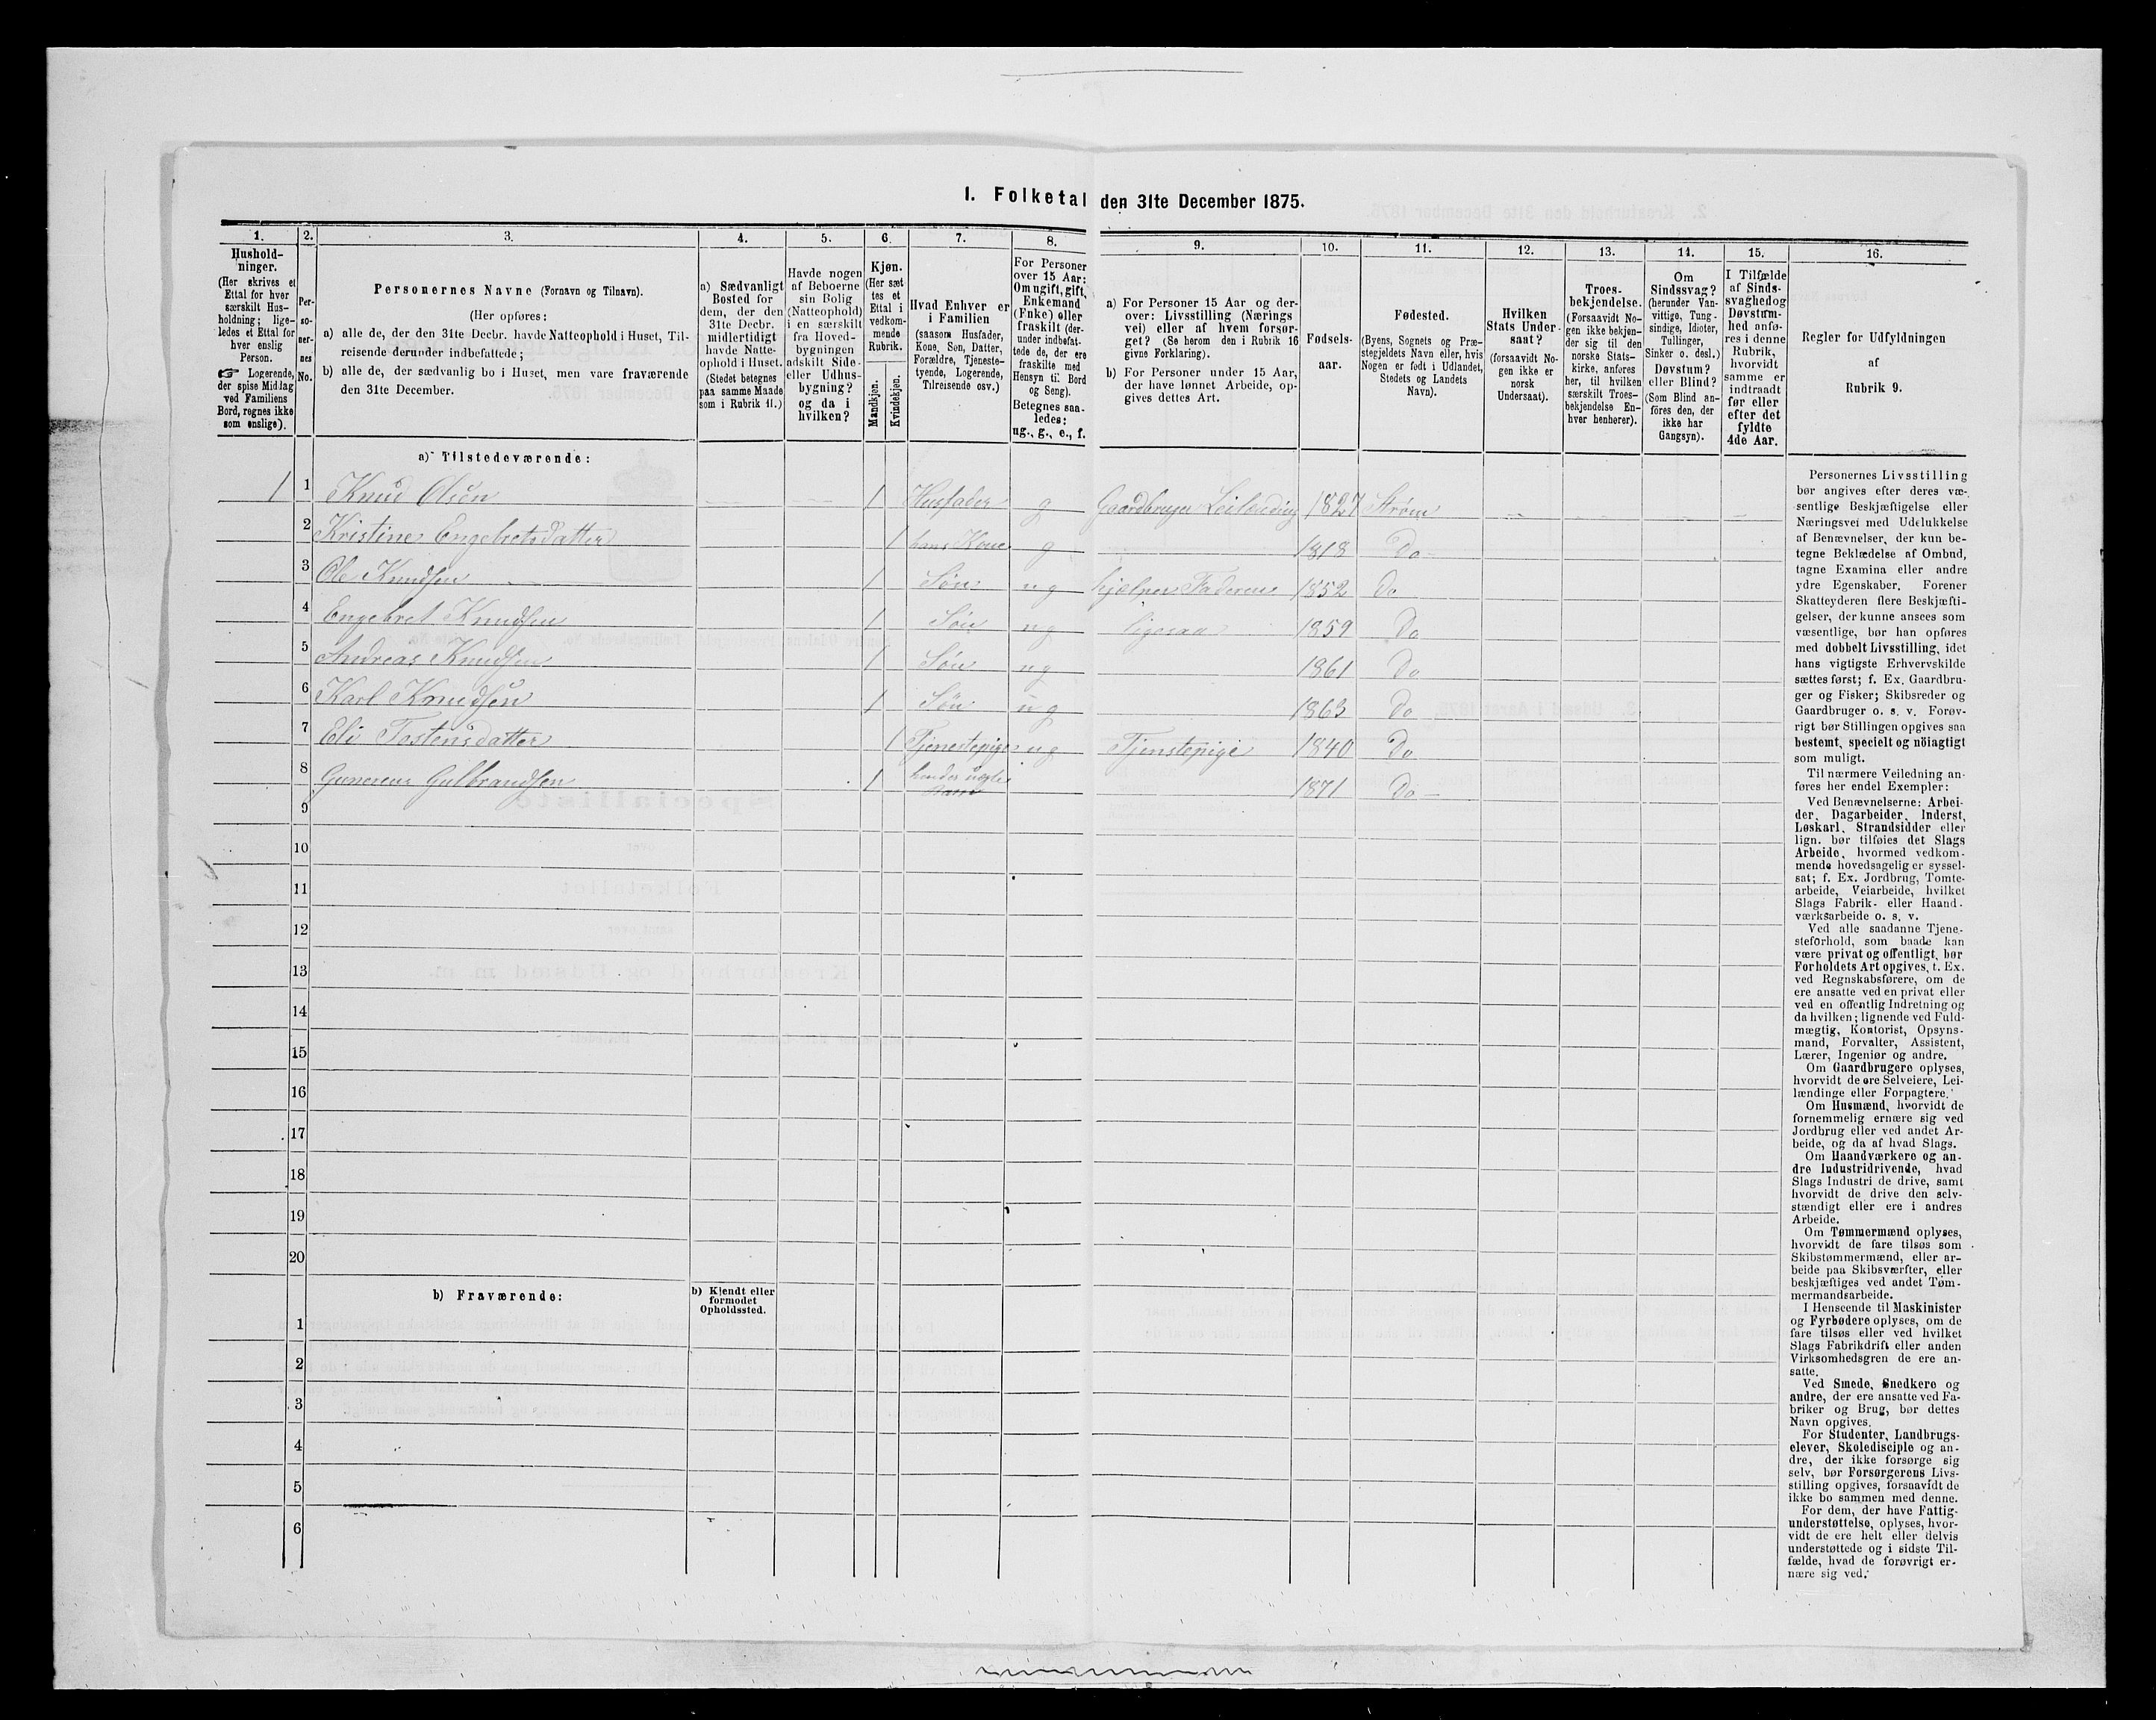 I. Folketal den 31te December 1875.
1.
Hushold-
ninger.
(Her skrives et
Ettal for hver
særskilt Hus-
holdning; lige-
ledes et Ettal for
hver enslig
Person.
☞ Logerende,
der spise Middag
ved Familiens
Bord, regnes ikke
som enslige).
2.
Per-
so-
ner-
nes
No.
3.
Personernes Navne (Fornavn og Tilnavn).
(Her opføres:
a) alle de, der den 31te Decbr. havde Natteophold i Huset, Til-
reisende derunder indbefattede;
b) alle de, der sædvanlig bo i Huset, men vare fraværende
den 31te December.
4.
a) Sædvanligt
Bosted for
dem, der den
31te Decbr.
midlertidigt
havde Natte-
ophold i Huset.
(Stedet betegnes
paa samme Maade
som i Rubrik 11.)
5.
Havde nogen
af Beboerne
sin Bolig
(Natteophold)
i en særskilt
fra Hoved-
bygningen
adskilt Side-
eller Udhus-
bygning?
og da i
hvilken?
6.
Kjøn.
(Her sæt
tes et
Ettal i
vedkom-
mende
Rubrik.
Mandkjøn.
Kvindekjøn.
7.
Hvad Enhver er
i Familien
(saasom Husfader,
Kone, Søn, Datter,
Forældre, Tjeneste-
tyende, Logerende,
Tilreisende osv.)
8.
For Personer
over 15 Aar:
Om ugift, gift,
Enkemand
(Enke) eller
fraskilt (der-
under indbefat-
tede de, der ere
fraskilte med
Hensyn til Bord
og Seng).
Betegnes saa-
ledes:
ug., g., e., f.
9.
a) For Personer 15 Aar og der-
over: Livsstilling (Nærings
vei) eller af hvem forsør-
get? (Se herom den i Rubrik 16
givne Forklaring).
b) For Personer under 15 Aar,
der have lønnet Arbeide, op-
gives dettes Art.
10.
Fødsels-
aar.
11.
Fødested.
(Byens, Sognets og Præ-
stegjeldets Navn eller, hvis
Nogen er født i Udlandet,
Stedets og Landets
Navn).
12.
Hvilken
Stats Under-
saat?
(forsaavidt No-
gen ikke er
norsk
Undersaat).
13.
Troes-
bekjendelse.
(Forsaavidt No-
gen ikke bekjen-
der sig til den
norske Stats-
kirke, anføres
her, til hvilken
særskilt Troes-
bekjendelse En-
hver henhører).
14.
Om
Sindssvag?
(herunder Van-
vittige, Tung-
sindige, Idioter,
Tullinger,
Sinker o. desl.)
Døvstum?
eller Blind?
(Som Blind an-
føres den, der
ikke har
Gangsyn).
15.
I Tilfælde
af Sinds-
svaghed og
Døvstum-
hed anfø-
res i denne
Rubrik,
hvorvidt
samme er
indtraadt
før eller
efter det
fyldte
4de Aar.
16.
Regler for Udfyldningen
af
Rubrik 9.
a) Tilstedeværende:
1 1 Knud Olsen 1 Husfader g Gaardbruger Leilending 1827 Strøm
2 Kristine Engebretsdatter 1 hans Kone g 1818 Do
3 Ole Knudsen 1 Søn ug hjælper Faderen 1852 Do
4 Engebret Knudsen 1 Søn ug ligesaa 1859 Do
5 Andreas Knudsen 1 Søn ug 1861 Do
6 Karl Knudsen 1 Søn ug 1863 Do
7 Eli Tostensdatter 1 Tjenestepige ug Tjenstepige 1840 Do
8 Gulbrandsen 1 hendes uægte
Barn 1871 Do
9
10
11
12
13
14
15
16
17
18
19
20
b) Fraværende:
b) Kjendt eller
formodet
Opholdssted.
1
2
3
4
5
6
Personernes Livsstilling
bør angives efter deres væ-
sentlige Beskjæftigelse eller
Næringsvei med Udelukkelse
af Benævnelser, der kun be-
tegne Beklædelse af Ombud,
tagne Examina eller andre
ydre Egenskaber. Forener
Skatteyderen flere Beskjæfti-
gelser, der kunne ansees som
væsentlige, bør han opføres
med dobbelt Livsstilling, idet
hans vigtigste Erhvervskilde
sættes først; f. Ex. Gaardbru-
ger og Fisker; Skibsreder og
Gaardbruger o. s. v. Forøv-
rigt bør Stillingen opgives saa
bestemt, specielt og nöiagtigt
som muligt.
Til nærmere Veiledning an-
føres her endel Exempler:
Ved Benævnelserne: Arbei-
der, Dagarbeider, Inderst,
Løskarl, Strandsidder eller
lign. bør tilføies det Slags
Arbeide, hvormed vedkom-
mende hovedsagelig er syssel-
sat; f. Ex. Jordbrug, Tomte-
arbeide, Veiarbeide, hvilket
Slags Fabrik- eller Haand-
værksarbeide o. s. v.
Ved alle saadanne Tjene-
steforhold, som baade kan
være privat og offentligt, bør
Forholdets Art opgives, t. Ex.
ved Regnskabsførere, om de
ere ansatte ved en privat eller
ved en offentlig Indretning og
da hvilken; lignende ved Fuld-
mægtig, Kontorist, Opsyns-
mand, Forvalter, Assistent,
Lærer, Ingeniør og andre.
Om Gaardbrugere oplyses,
hvorvidt de ere Selveiere, Lei-
lændinge eller Forpagtere.
Om Husmænd, hvorvidt de
fornemmelig ernære sig ved
Jordbrug eller ved andet Ar-
beide, og da af hvad Slags.
Om Haandværkere og an-
dre Industridrivende, hvad
Slags Industri de drive, samt
hvorvidt de drive den selv-
stændigt eller ere i andres
Arbeide.
Om Tømmermænd oplyses,
hvorvidt de fare tilsøs som
Skibstømmermænd, eller ar-
beide paa Skibsværfter, eller
beskjæftiges ved andet Tøm-
mermandsarbeide.
I Henseende til Maskinister
og Fyrbødere oplyses, om de
fare tilsøs eller ved hvilket
Slags Fabrikdrift eller anden
Virksomhedsgren de ere an-
satte.
Ved Smede, Snedkere og
andre, der ere ansatte ved Fa-
briker og Brug, bør dettes
Navn opgives.
For Studenter, Landbrugs-
elever, Skoledisciple og an-
dre, der ikke forsørge sig
selv, bør Forsørgerens Livs-
stilling opgives, forsaavidt de
ikke bo sammen med denne.
For dem, der have Fattig-
understøttelse, oplyses, hvor-
vidt de ere helt eller delvis
understøttede og i sidste Til-
fælde, hvad de forøvrigt er-
nære sig ved.